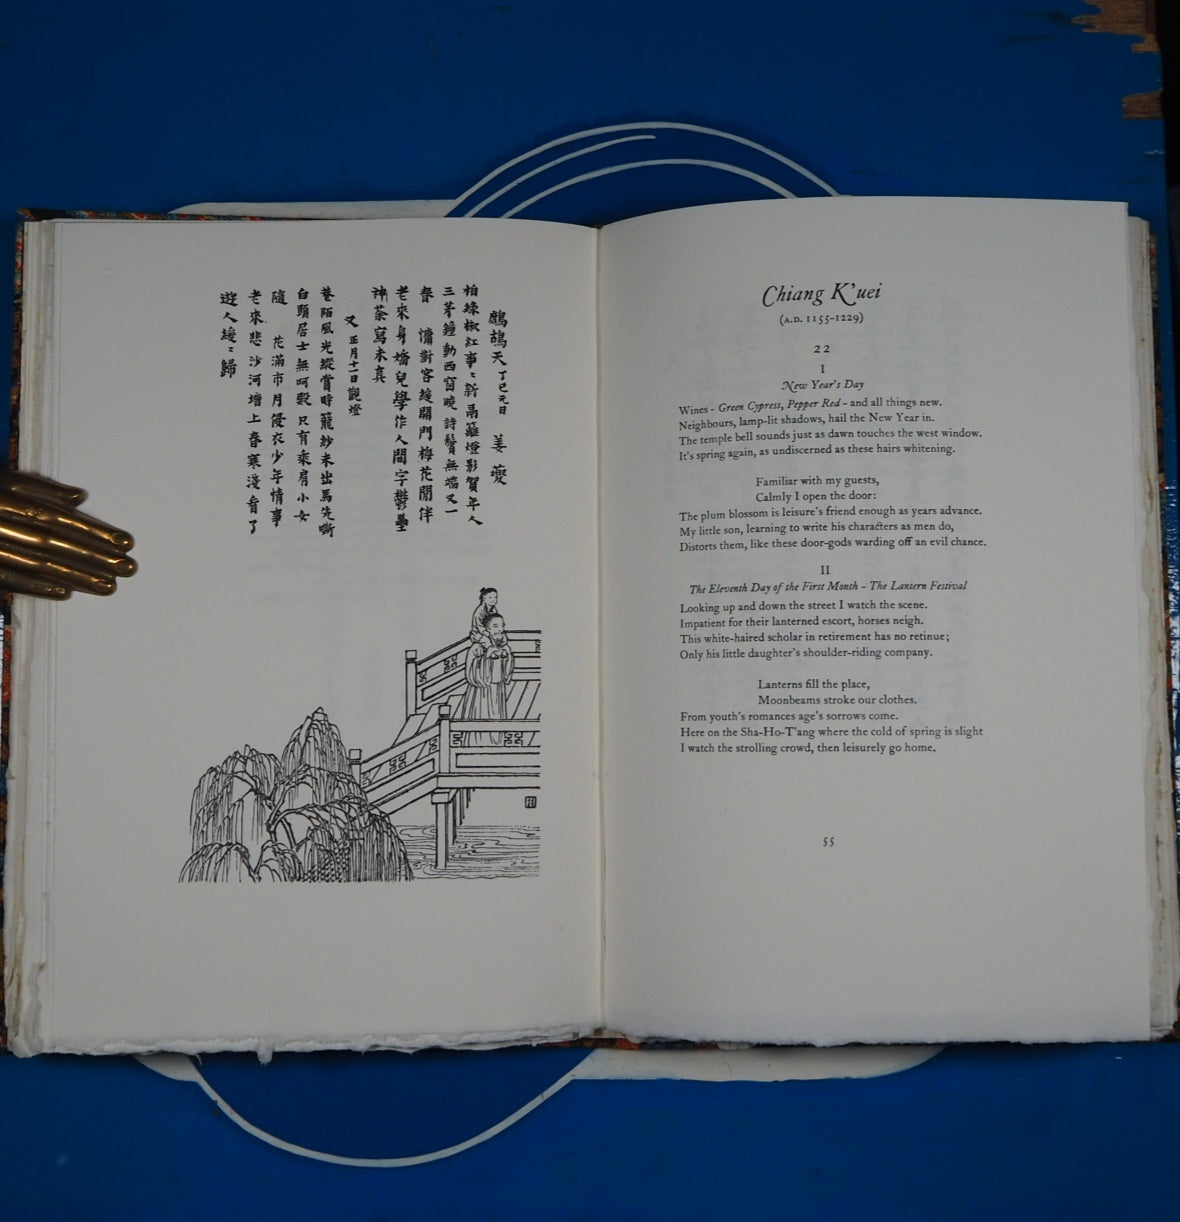 鷓鴣天 丁巳元日 姜夔
柏綠椒紅事〻新鬲籬燈影賀年人
三茅鐘動西窗曉詩鬢無端又一
春 慵對客緩開門梅花閒伴
老來身嬌兒學作人間字鬱壘
神荼寫未真
又 正月十一日觀燈
巷陌風光縱賞時籠紗未出馬先嘶
白頭居士無呵殿只有乘肩小女
隨 花滿市月侵衣少年情事
老來悲沙河塘上春寒淺看了
遊人緩〻歸
Chiang K'uei
(A.D. 1155-1229)
22
I
New Year's Day
Wines - Green Cypress, Pepper Red - and all things new.
Neighbours, lamp-lit shadows, hail the New Year in.
The temple bell sounds just as dawn touches the west window.
It's spring again, as undiscerned as these hairs whitening.
Familiar with my guests,
Calmly I open the door:
The plum blossom is leisure's friend enough as years advance.
My little son, learning to write his characters as men do,
Distorts them, like these door-gods warding off an evil chance.
II
The Eleventh Day of the First Month - The Lantern Festival
Looking up and down the street I watch the scene.
Impatient for their lanterned escort, horses neigh.
This white-haired scholar in retirement has no retinue;
Only his little daughter's shoulder-riding company.
Lanterns fill the place,
Moonbeams stroke our clothes.
From youth's romances age's sorrows come.
Here on the Sha-Ho-T'ang where the cold of spring is slight
I watch the strolling crowd, then leisurely go home.
55